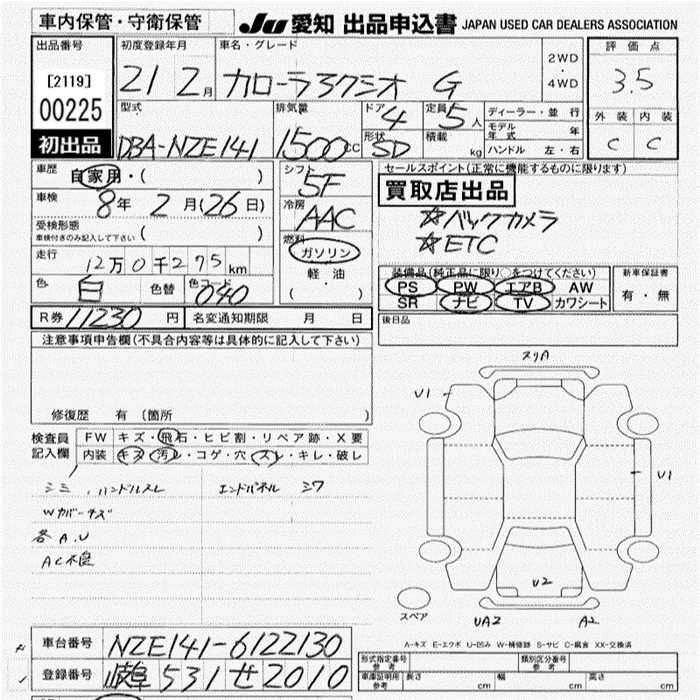 車内保管・守衛保管 JU 愛知 出品申込書 JAPAN USED CAR DEALERS ASSOCIATION
出品番号 初度登録年月 車名・グレード 2WD・4WD 評価点
[2119] 21 2月 カローラアクシオ G 3.5
00225
型式 排気量 ドア 4 定員 5人 ディーラー・並行 外装 内装
モデル年式 年
初出品 DBA-NZE141 1500cc 形状 SD 積載 kg ハンドル 左・右 C C
車歴 自家用・( ) シフト 5F セールスポイント(正常に機能するものに限ります)
買取店出品
車検 8年 2月(26日) 冷房 AAC ☆バックカメラ
☆ETC
受検形態 ( )
車検付きのみ記入して下さい
燃料 ガソリン
軽・油
( ・ )
走行 12万0千275km
装備品(純正品に限り○をつけてください) 新車保証書
PS PW エアB AW 有・無
SR ナビ TV カワシート
色 白 色替 色コード 040
R券 11230円 名変通知期限 月 日 後日品
注意事項申告欄(不具合内容等は具体的に記入して下さい)
修復歴 有 (箇所 )
検査員記入欄 FW キズ・飛石・ヒビ割・リペア跡・X要
内装 キズ・汚レ・コゲ・穴・スレ・キレ・破レ
シミ、ハンドルスレ エンドパネル シワ
Wカバーキズ
各A.U
AC不良
スリA
U1
U1
U2
スペア UA2 A2
A-キズ E-エクボ U-凹み W-補修跡 S-サビ C-腐食 XX-交換済
車台番号 NZE141-6122130
形式指定番号 参考 類別区分番号 参考
登録番号 岐阜 531 せ 2010
車庫証明用 参考 長さ cm 幅 cm 高さ cm